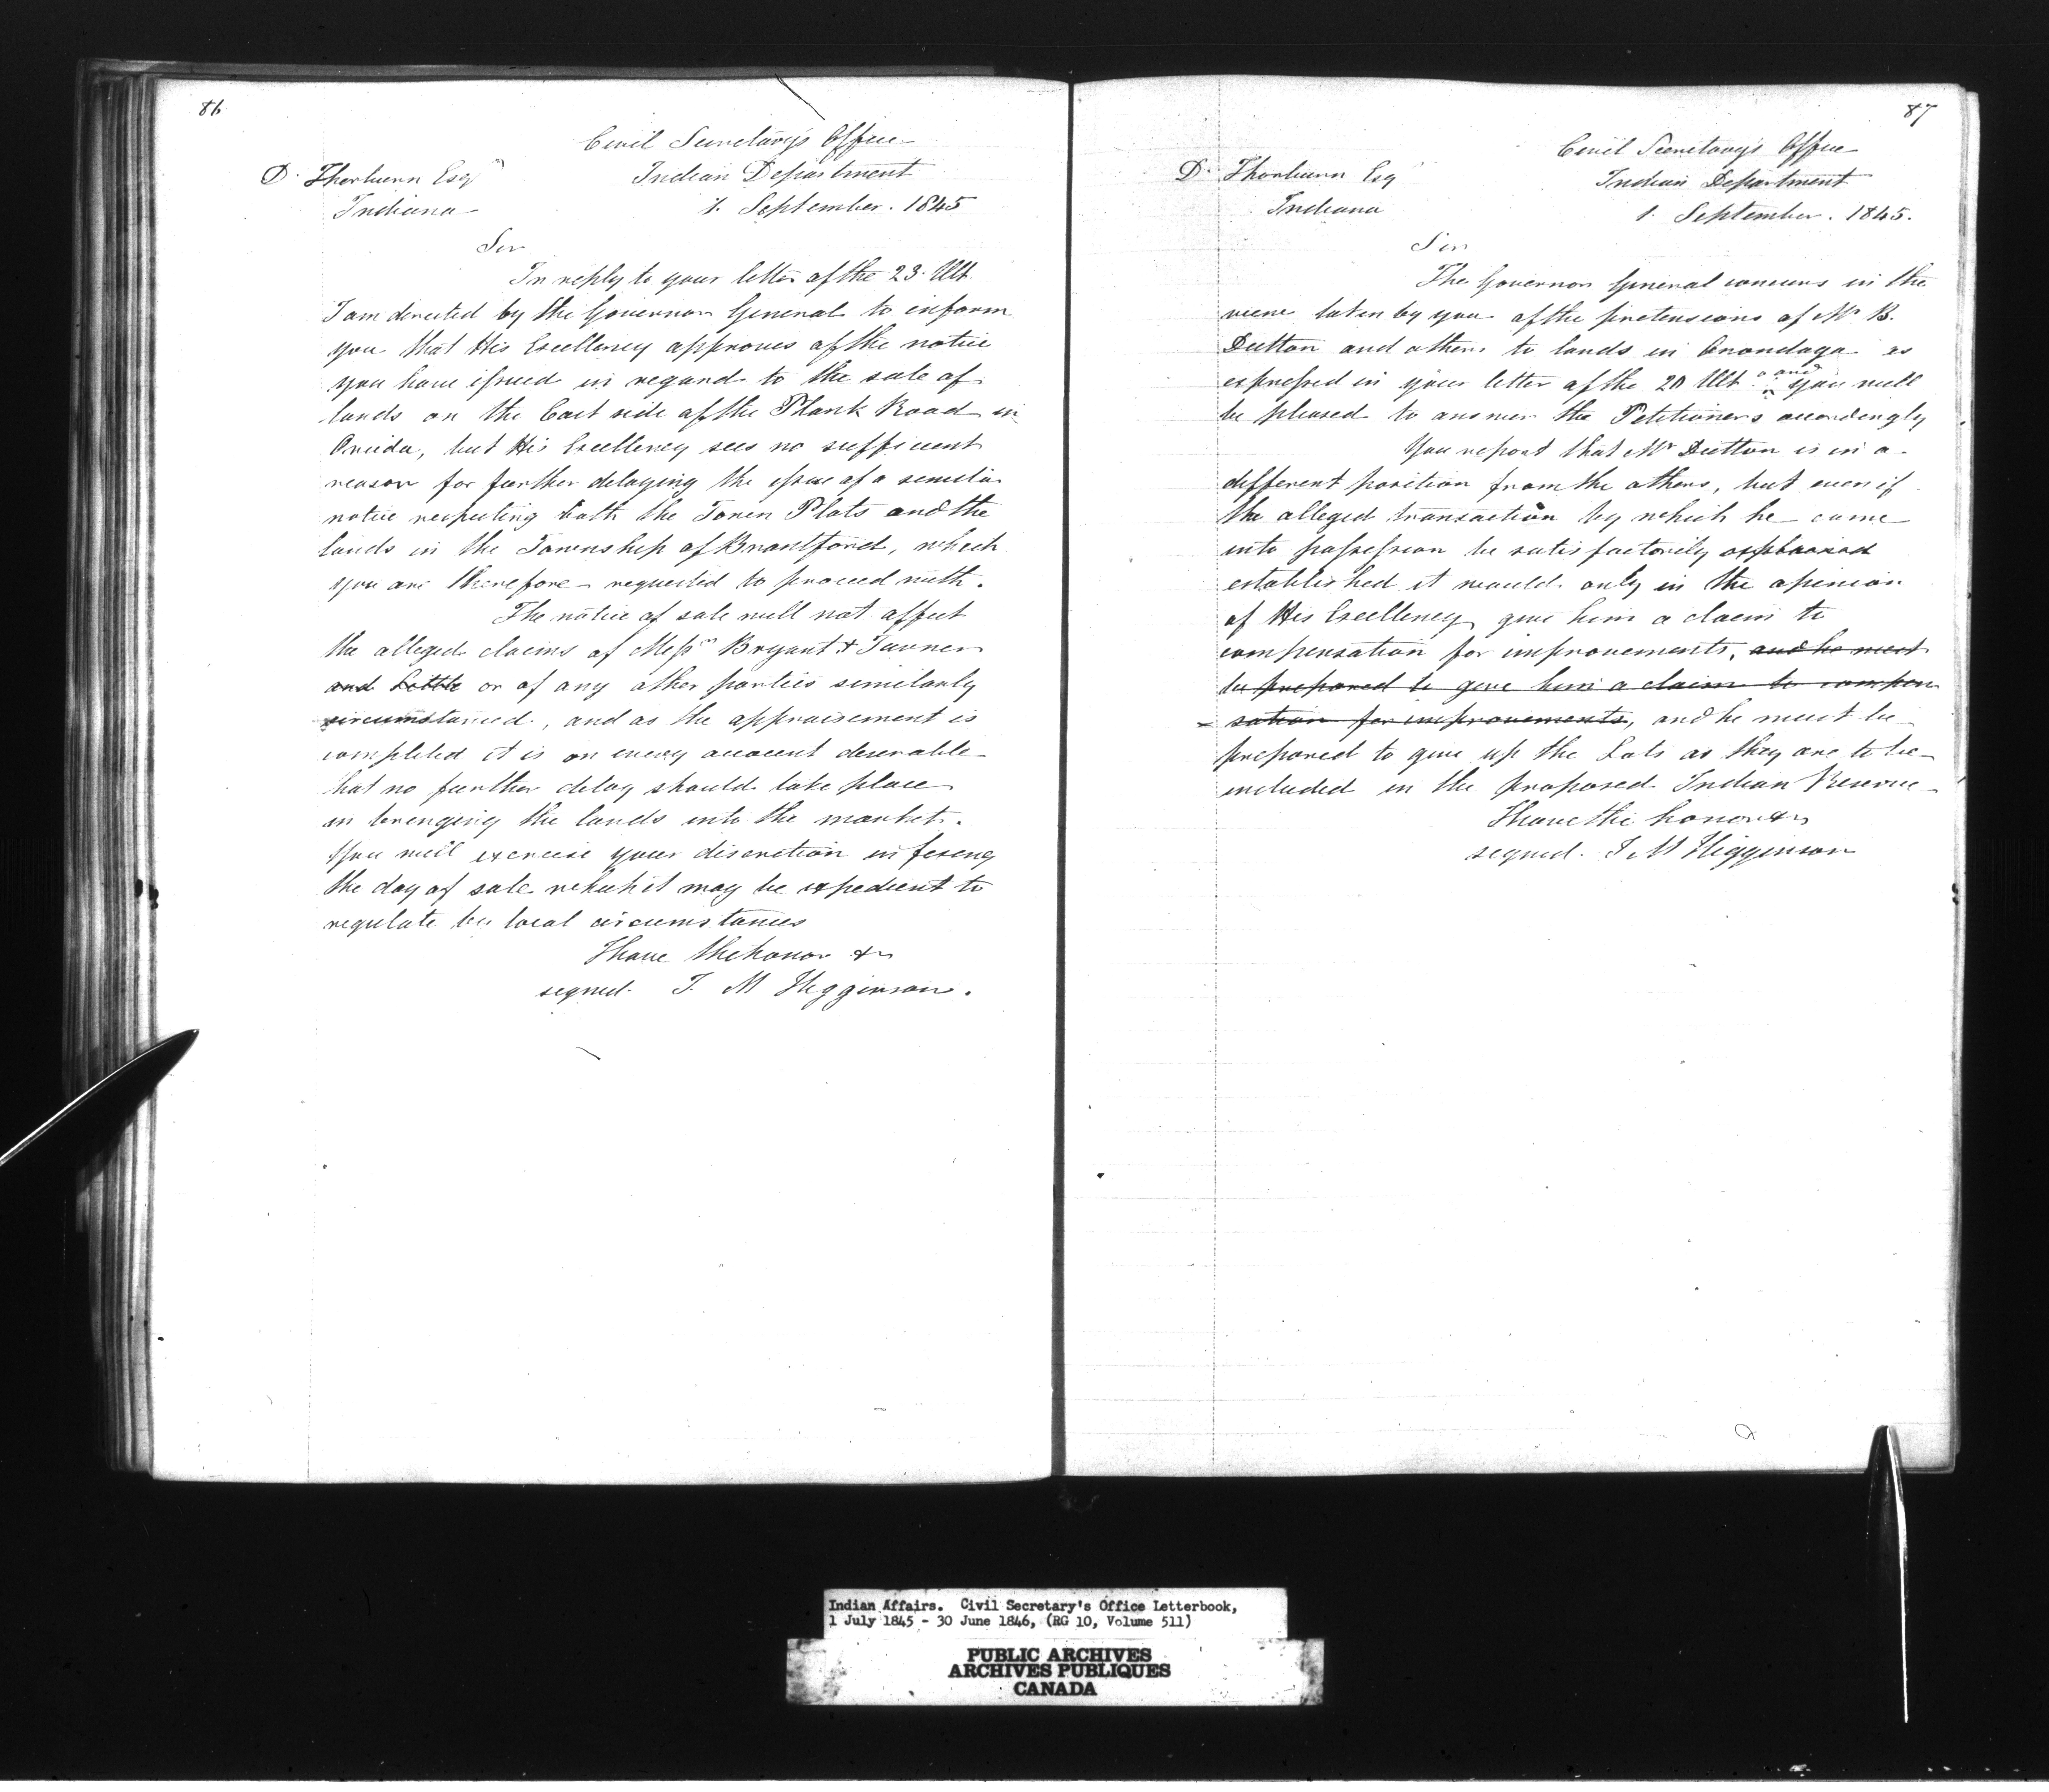 86
Civil Secretary's Office
D. Thorburn Esqr Indian Department
Indiana 1. September. 1845
Sir
In reply to your letter of the 23. Ult.
I am directed by the Governor General to inform
you that His Excellency approves of the notice
you have issued in regard to the sale of
lands on the East side of the Plank Road in
Oneida, but His Excellency sees no sufficient
reason for further delaying the issue of a similar
notice respecting both the Town Plots and the
lands in the Township of Brantford, which
you are therefore requested to proceed with.
The notice of sale will not affect
the alleged claims of Messrs Bryant & Turner
and Little or of any other parties similarly
circumstanced, and as the appraisement is
completed it is on every account desirable
that no further delay should take place
in bringing the lands into the market.
You will exercise your discretion in fixing
the day of sale which it may be expedient to
regulate by local circumstances
I have the honor &c
signed. J. M Higginson.
87
Civil Secretary's Office
D. Thorburn Esq Indian Department
Indiana 1. September. 1845.
Sir
The Governor General concurs in the
view taken by you of the pretensions of Mr B.
Dutton and others to lands in Onondaga as
expressed in your letter of the 20 Ult. and you will
be pleased to answer the Petitioners accordingly
You report that Mr Dutton is in a
different position from the others, but even if
the alleged transaction by which he came
into possession be satisfactorily explained
established it would only in the opinion
of His Excellency give him a claim to
compensation for improvements, and he must
be prepared to give him a claim to compen
sation for improvements, and he must be
prepared to give up the Lots as they are to be
included in the proposed Indian Reserve
I have the honor &c
signed. J M Higginson
Indian Affairs. Civil Secretary's Office Letterbook,
1 July 1845 - 30 June 1846, (RG 10, Volume 511)
PUBLIC ARCHIVES
ARCHIVES PUBLIQUES
CANADA